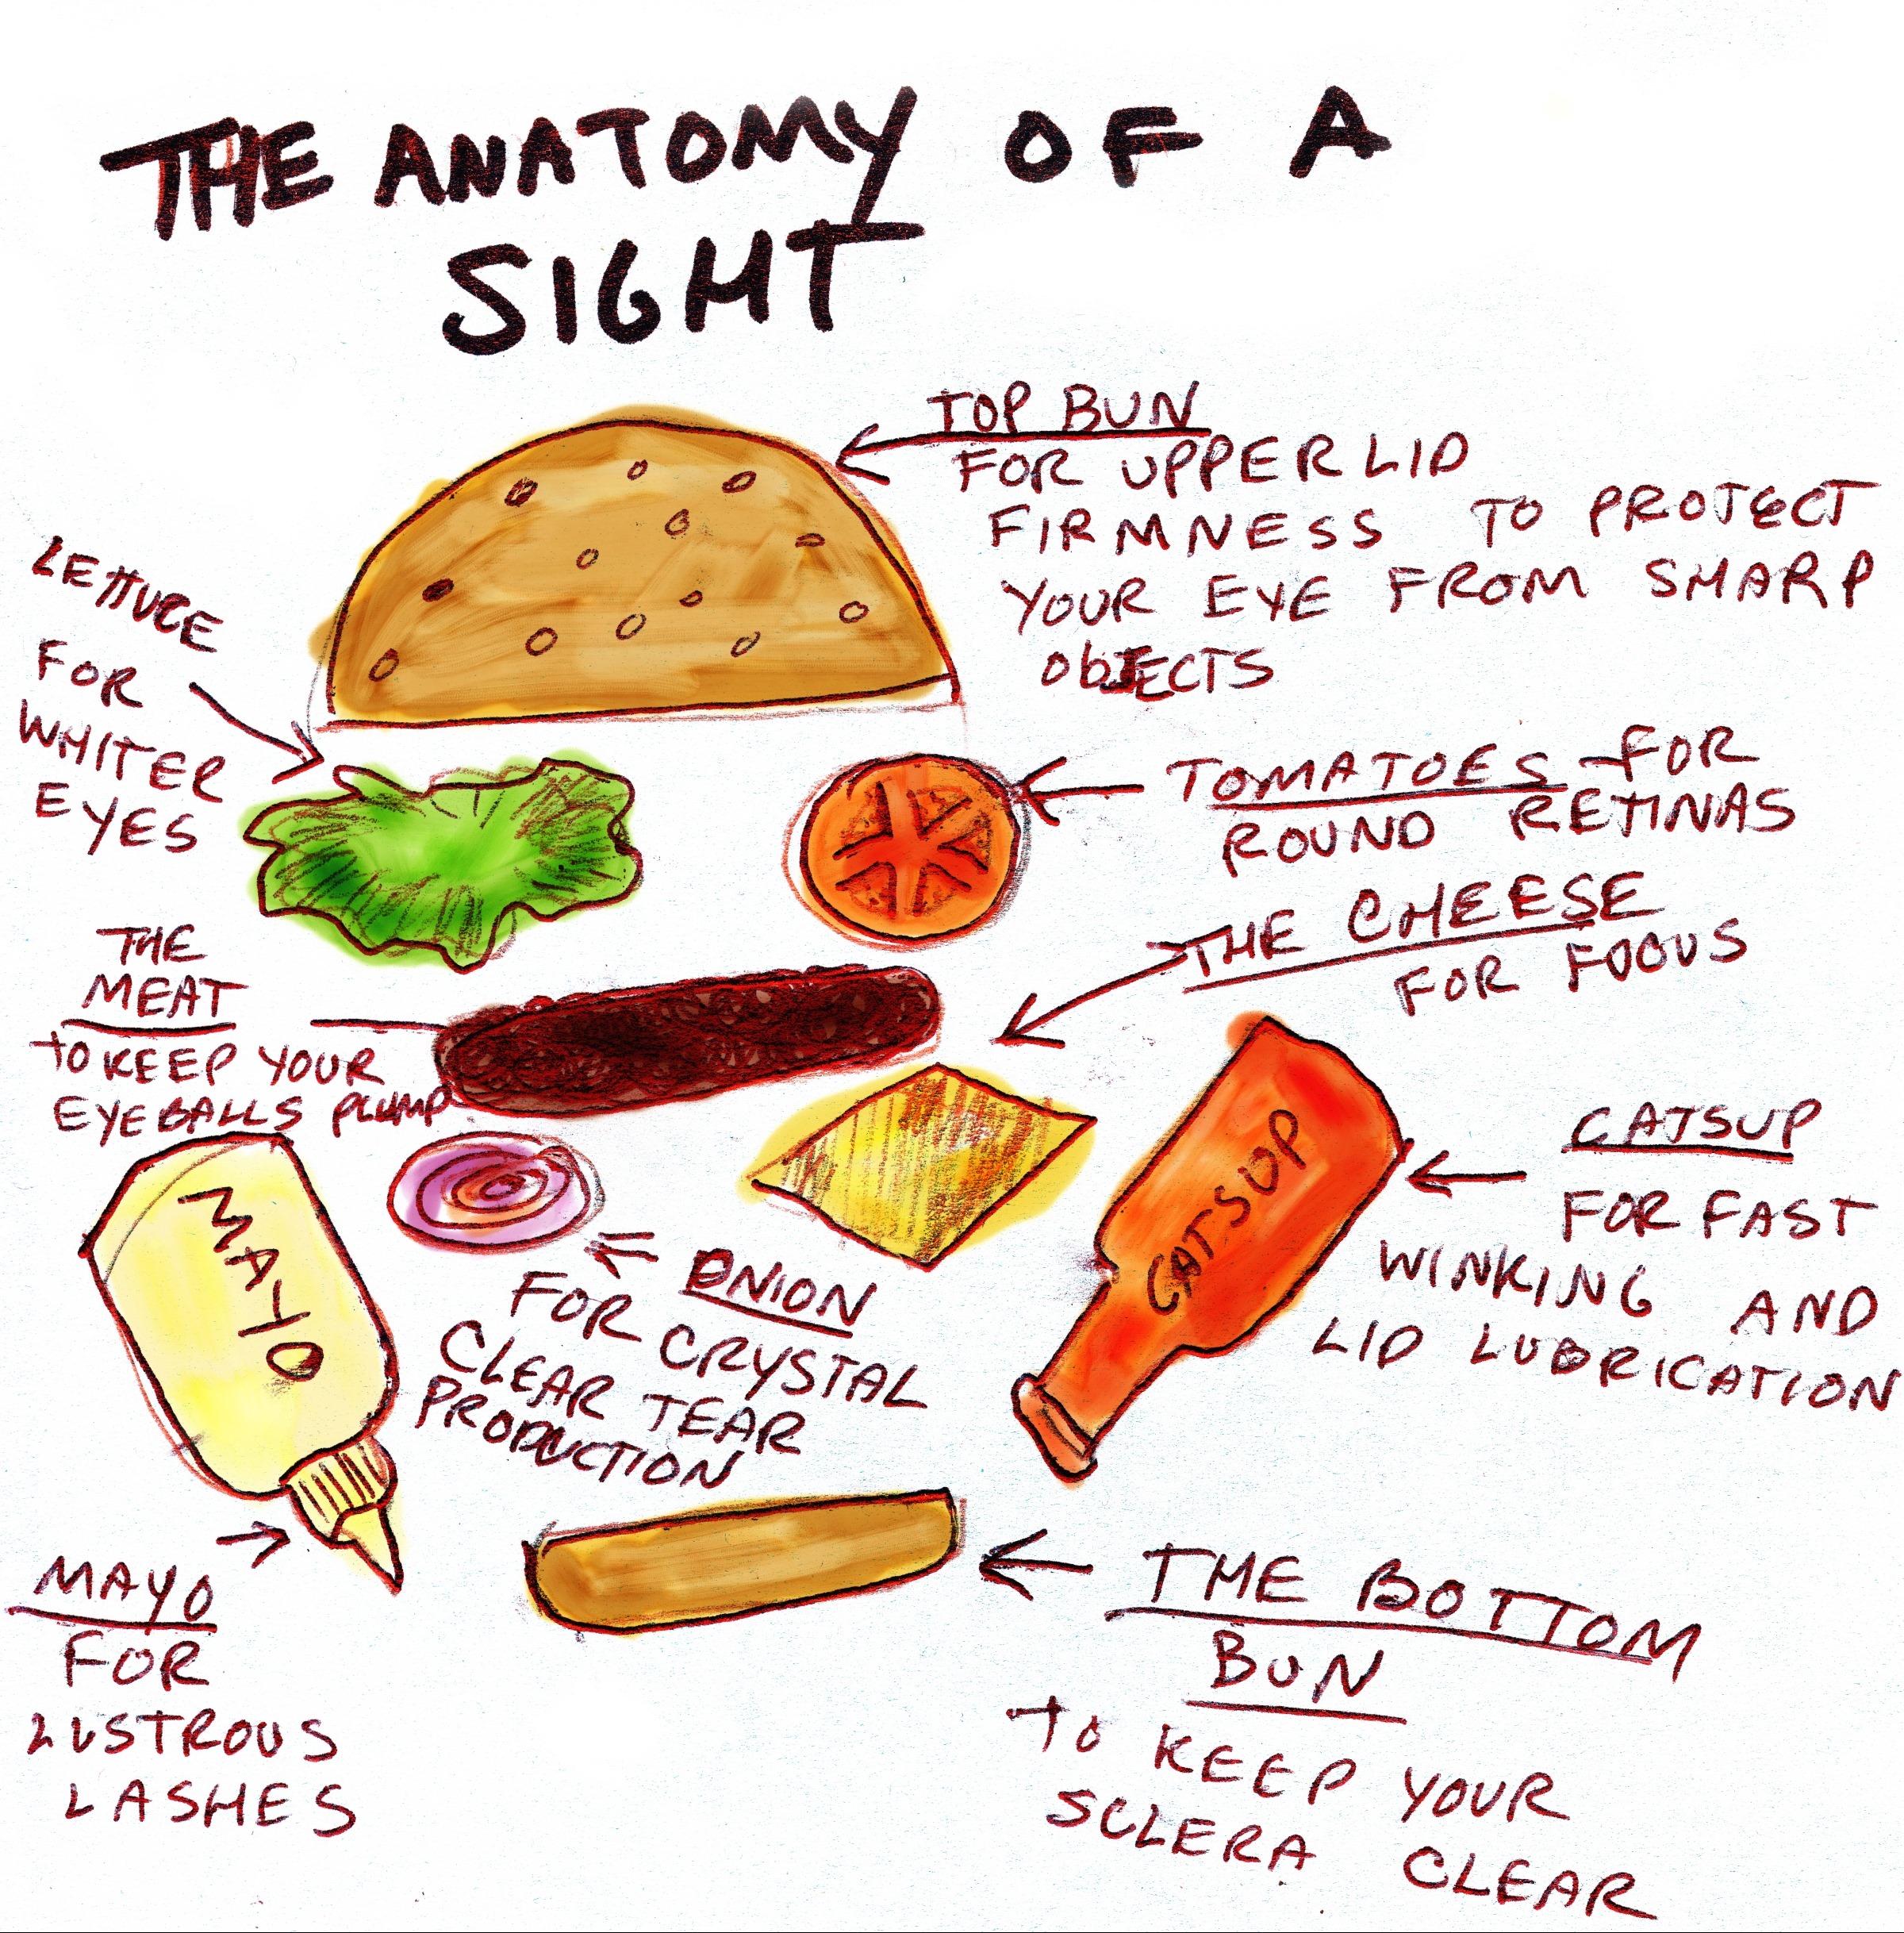 THE ANATOMY OF A
SIGHT
TOP BUN
FOR UPPER LID
FIRMNESS TO PROTECT
YOUR EYE FROM SHARP
ObJECTS
LETTUCE
FOR
WHITER
EYES
TOMATOES FOR
ROUND RETINAS
THE CHEESE
FOR FOCUS
THE
MEAT
to KEEP YOUR
EYEBALLS PLUMP
CATSUP
CATSUP
FOR FAST
WINKING AND
LID LUBRICATION
MAYO
ONION
FOR CRYSTAL
CLEAR TEAR
PRODUCTION
MAYO
FOR
LUSTROUS
LASHES
THE BOTTOM
BUN
to KEEP YOUR
SCLERA CLEAR